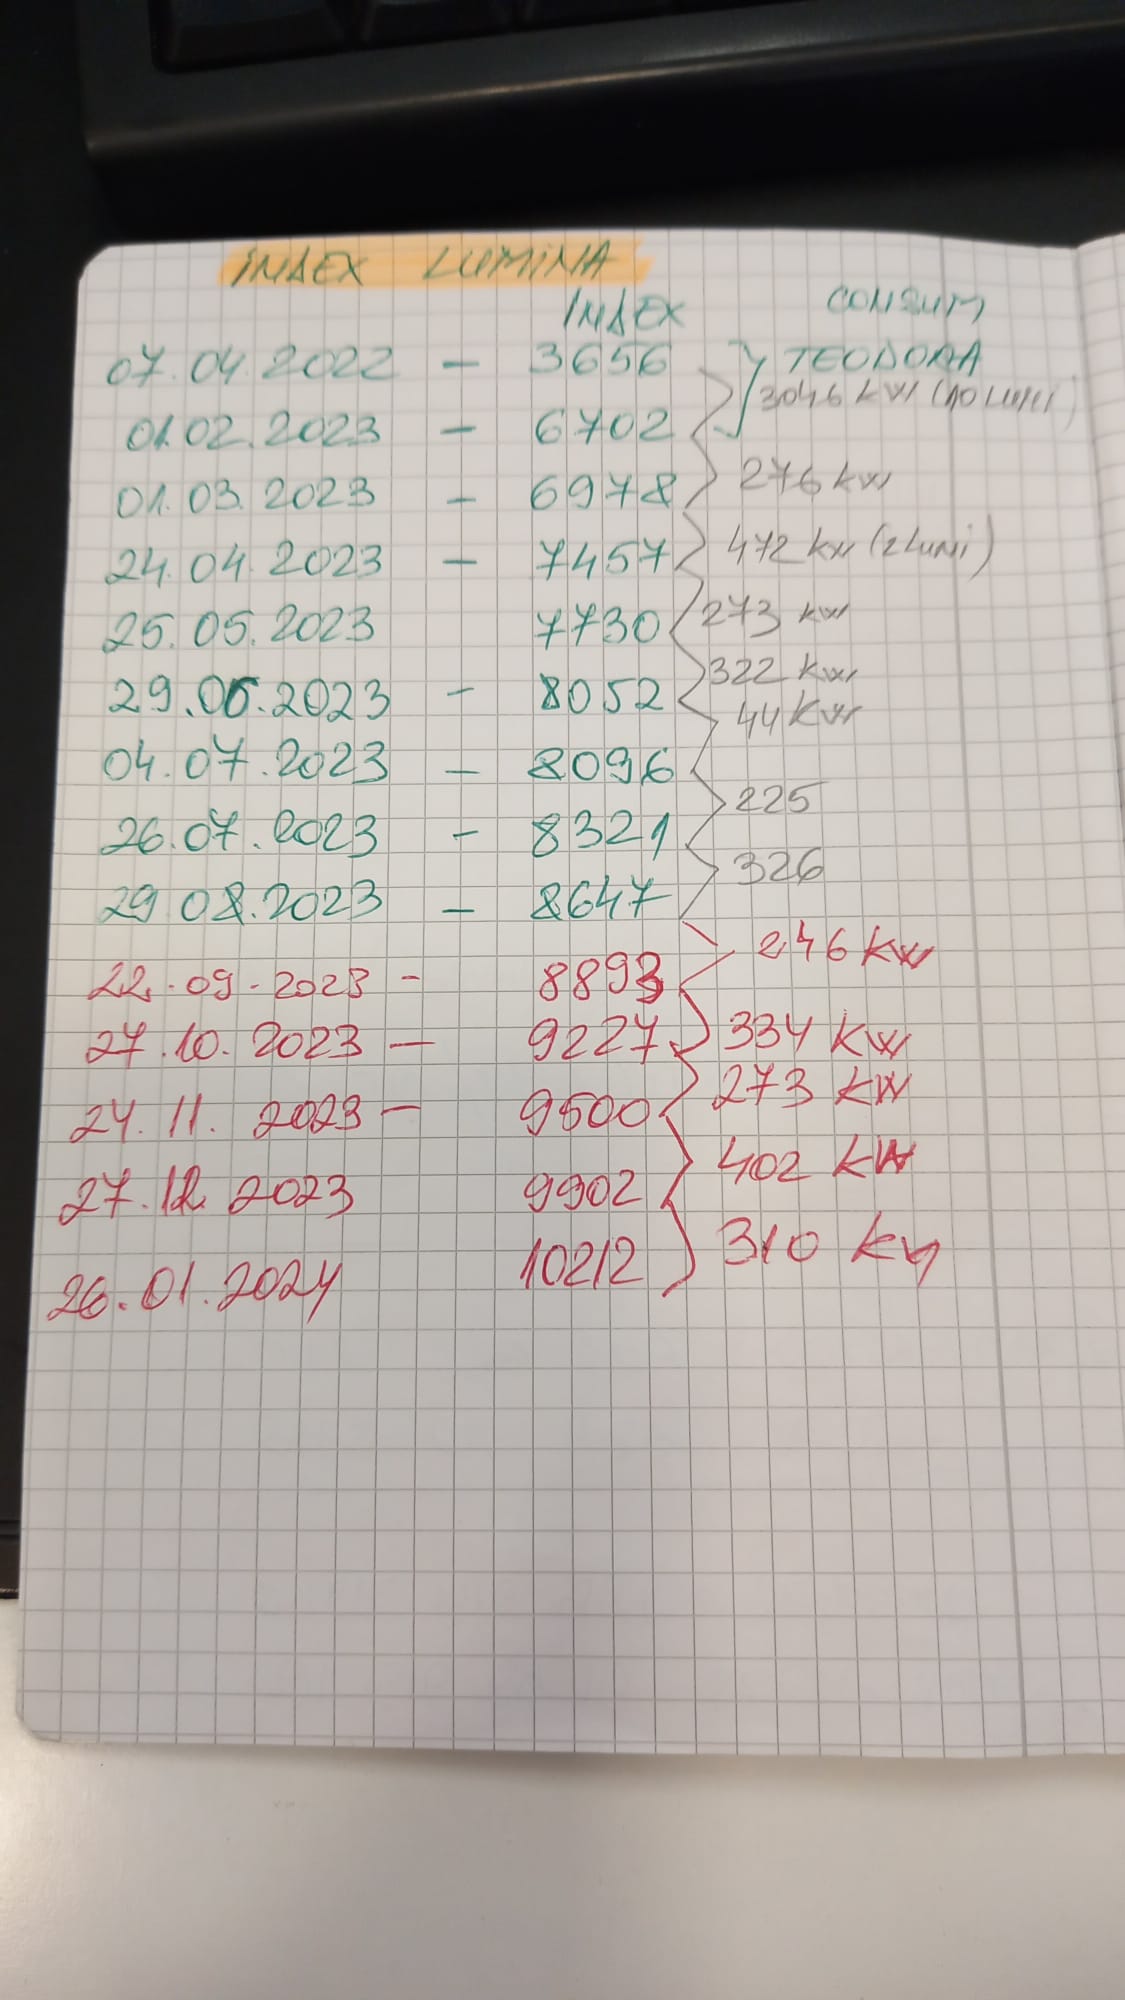 INDEX LUMINA
INDEX CONSUM
07.04.2022 - 3656 TEODORA
3046 KW (10 LUNI)
01.02.2023 - 6702
01.03.2023 - 6978 276 kw
24.04.2023 - 7457 472 kw (2 luni)
25.05.2023 7730 273 kw
29.06.2023 - 8052 322 kw
44 kw
04.07.2023 - 8096
26.07.2023 - 8321 225
29.08.2023 - 8647 326
22.09.2023 - 8893 246 kw
27.10.2023 - 9227 334 kw
24.11.2023 - 9500 273 KW
27.12.2023 9902 402 KW
26.01.2024 10212 310 kw